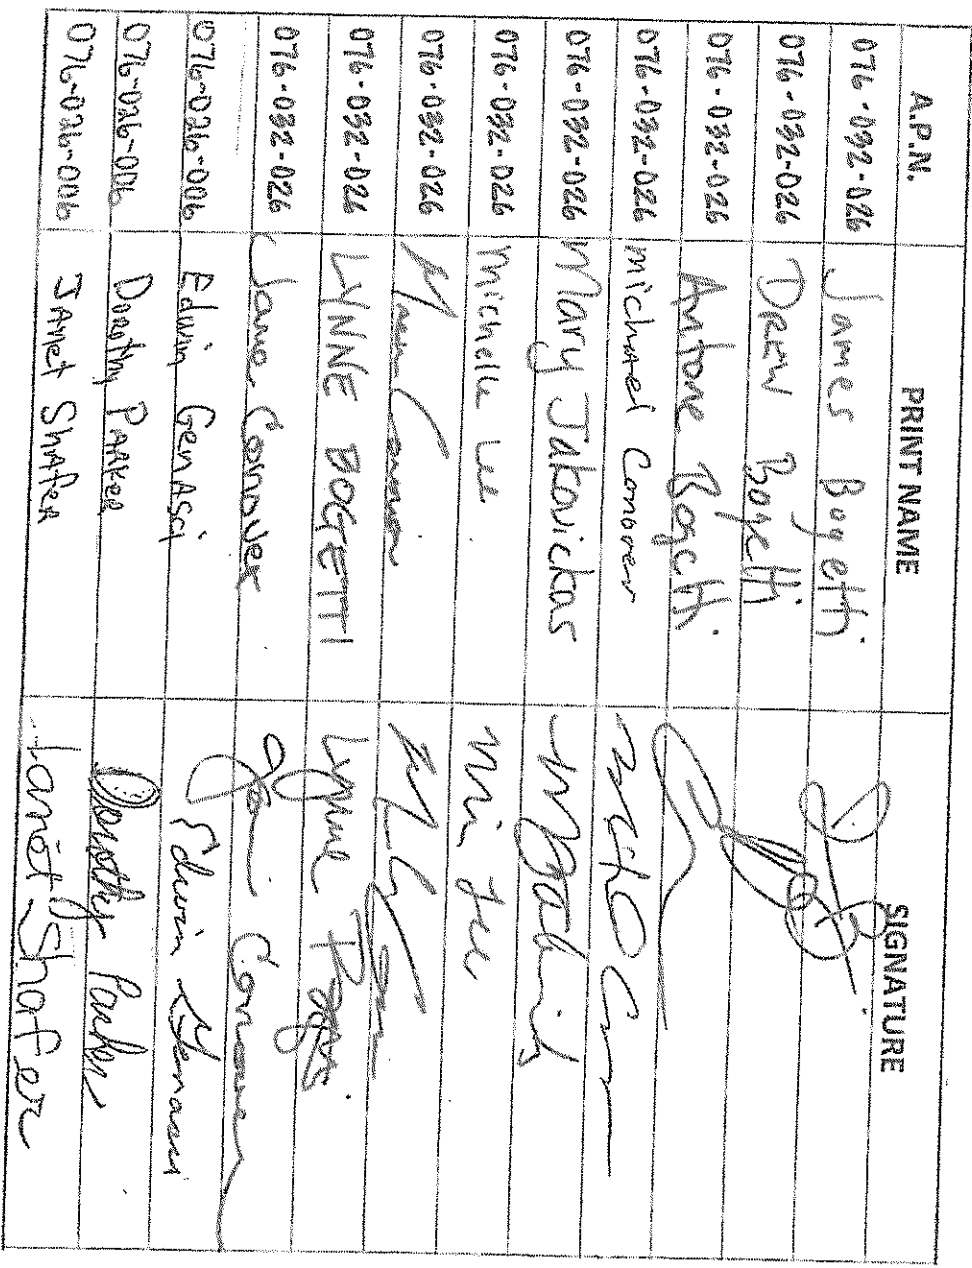 A.P.N. PRINT NAME SIGNATURE
076-032-026 James Bogetti
076-032-026 DREW Bogetti
076-032-026 Antone Bogetti
076-032-026 michael Conover
076-032-026 Mary Jakovickas
076-032-026 Michelle Lee Mi Lee
076-032-026
076-032-026 LYNNE BOGETTI Lynne
076-032-026 Jane Conover Jane Conover
076-026-006 Edwin GenAsci Edwin Genasci
076-026-006 Dorothy PARKER Dorothy Parker
076-026-006 JANET ShAfER Janet Shafer